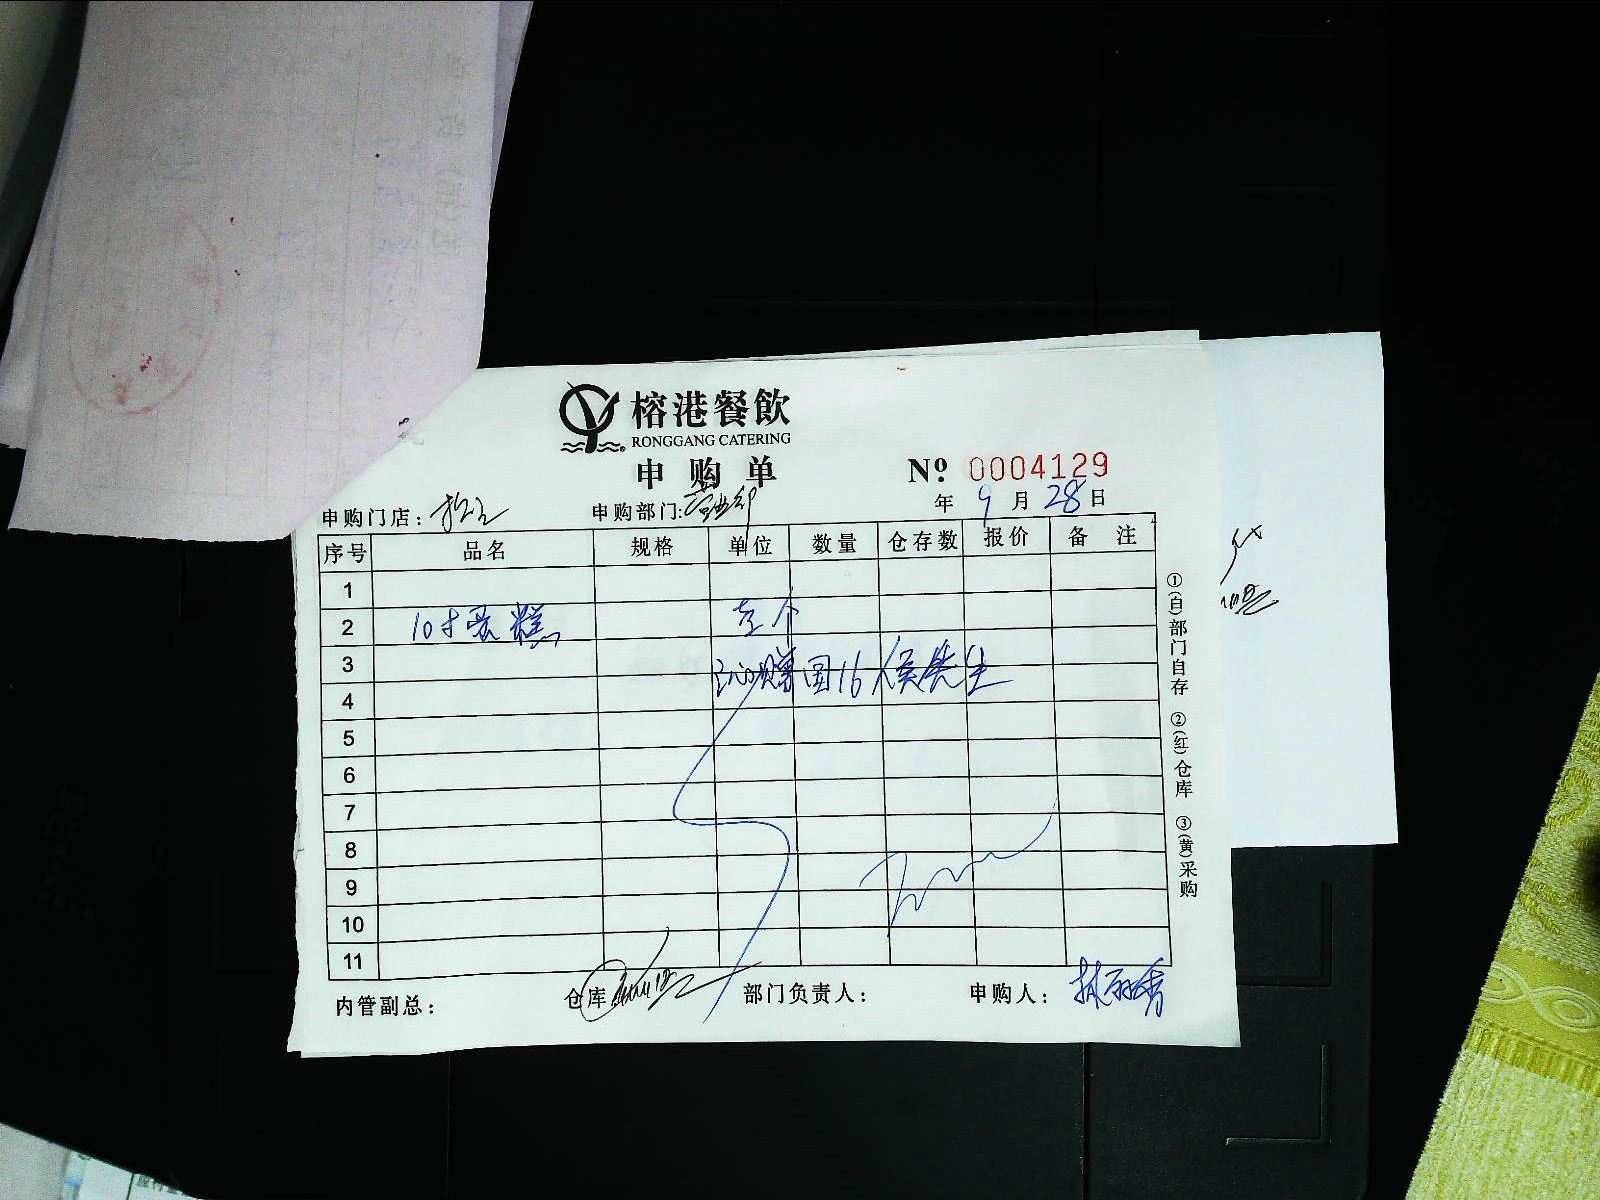 榕港餐飲
RONGGANG CATERING
申购单
Nº 0004129
年 9 月 28 日
申购门店：
申购部门: 营业部
序号 品名 规格 单位 数量 仓存数 报价 备 注
1
2 10寸蛋糕 壱个
3 赠 国16 侯先生
4
5
6
7
8
9
10
11
内管副总：
仓库
部门负责人：
申购人： 林丽秀
①(白)部门自存 ②(红)仓库 ③(黄)采购